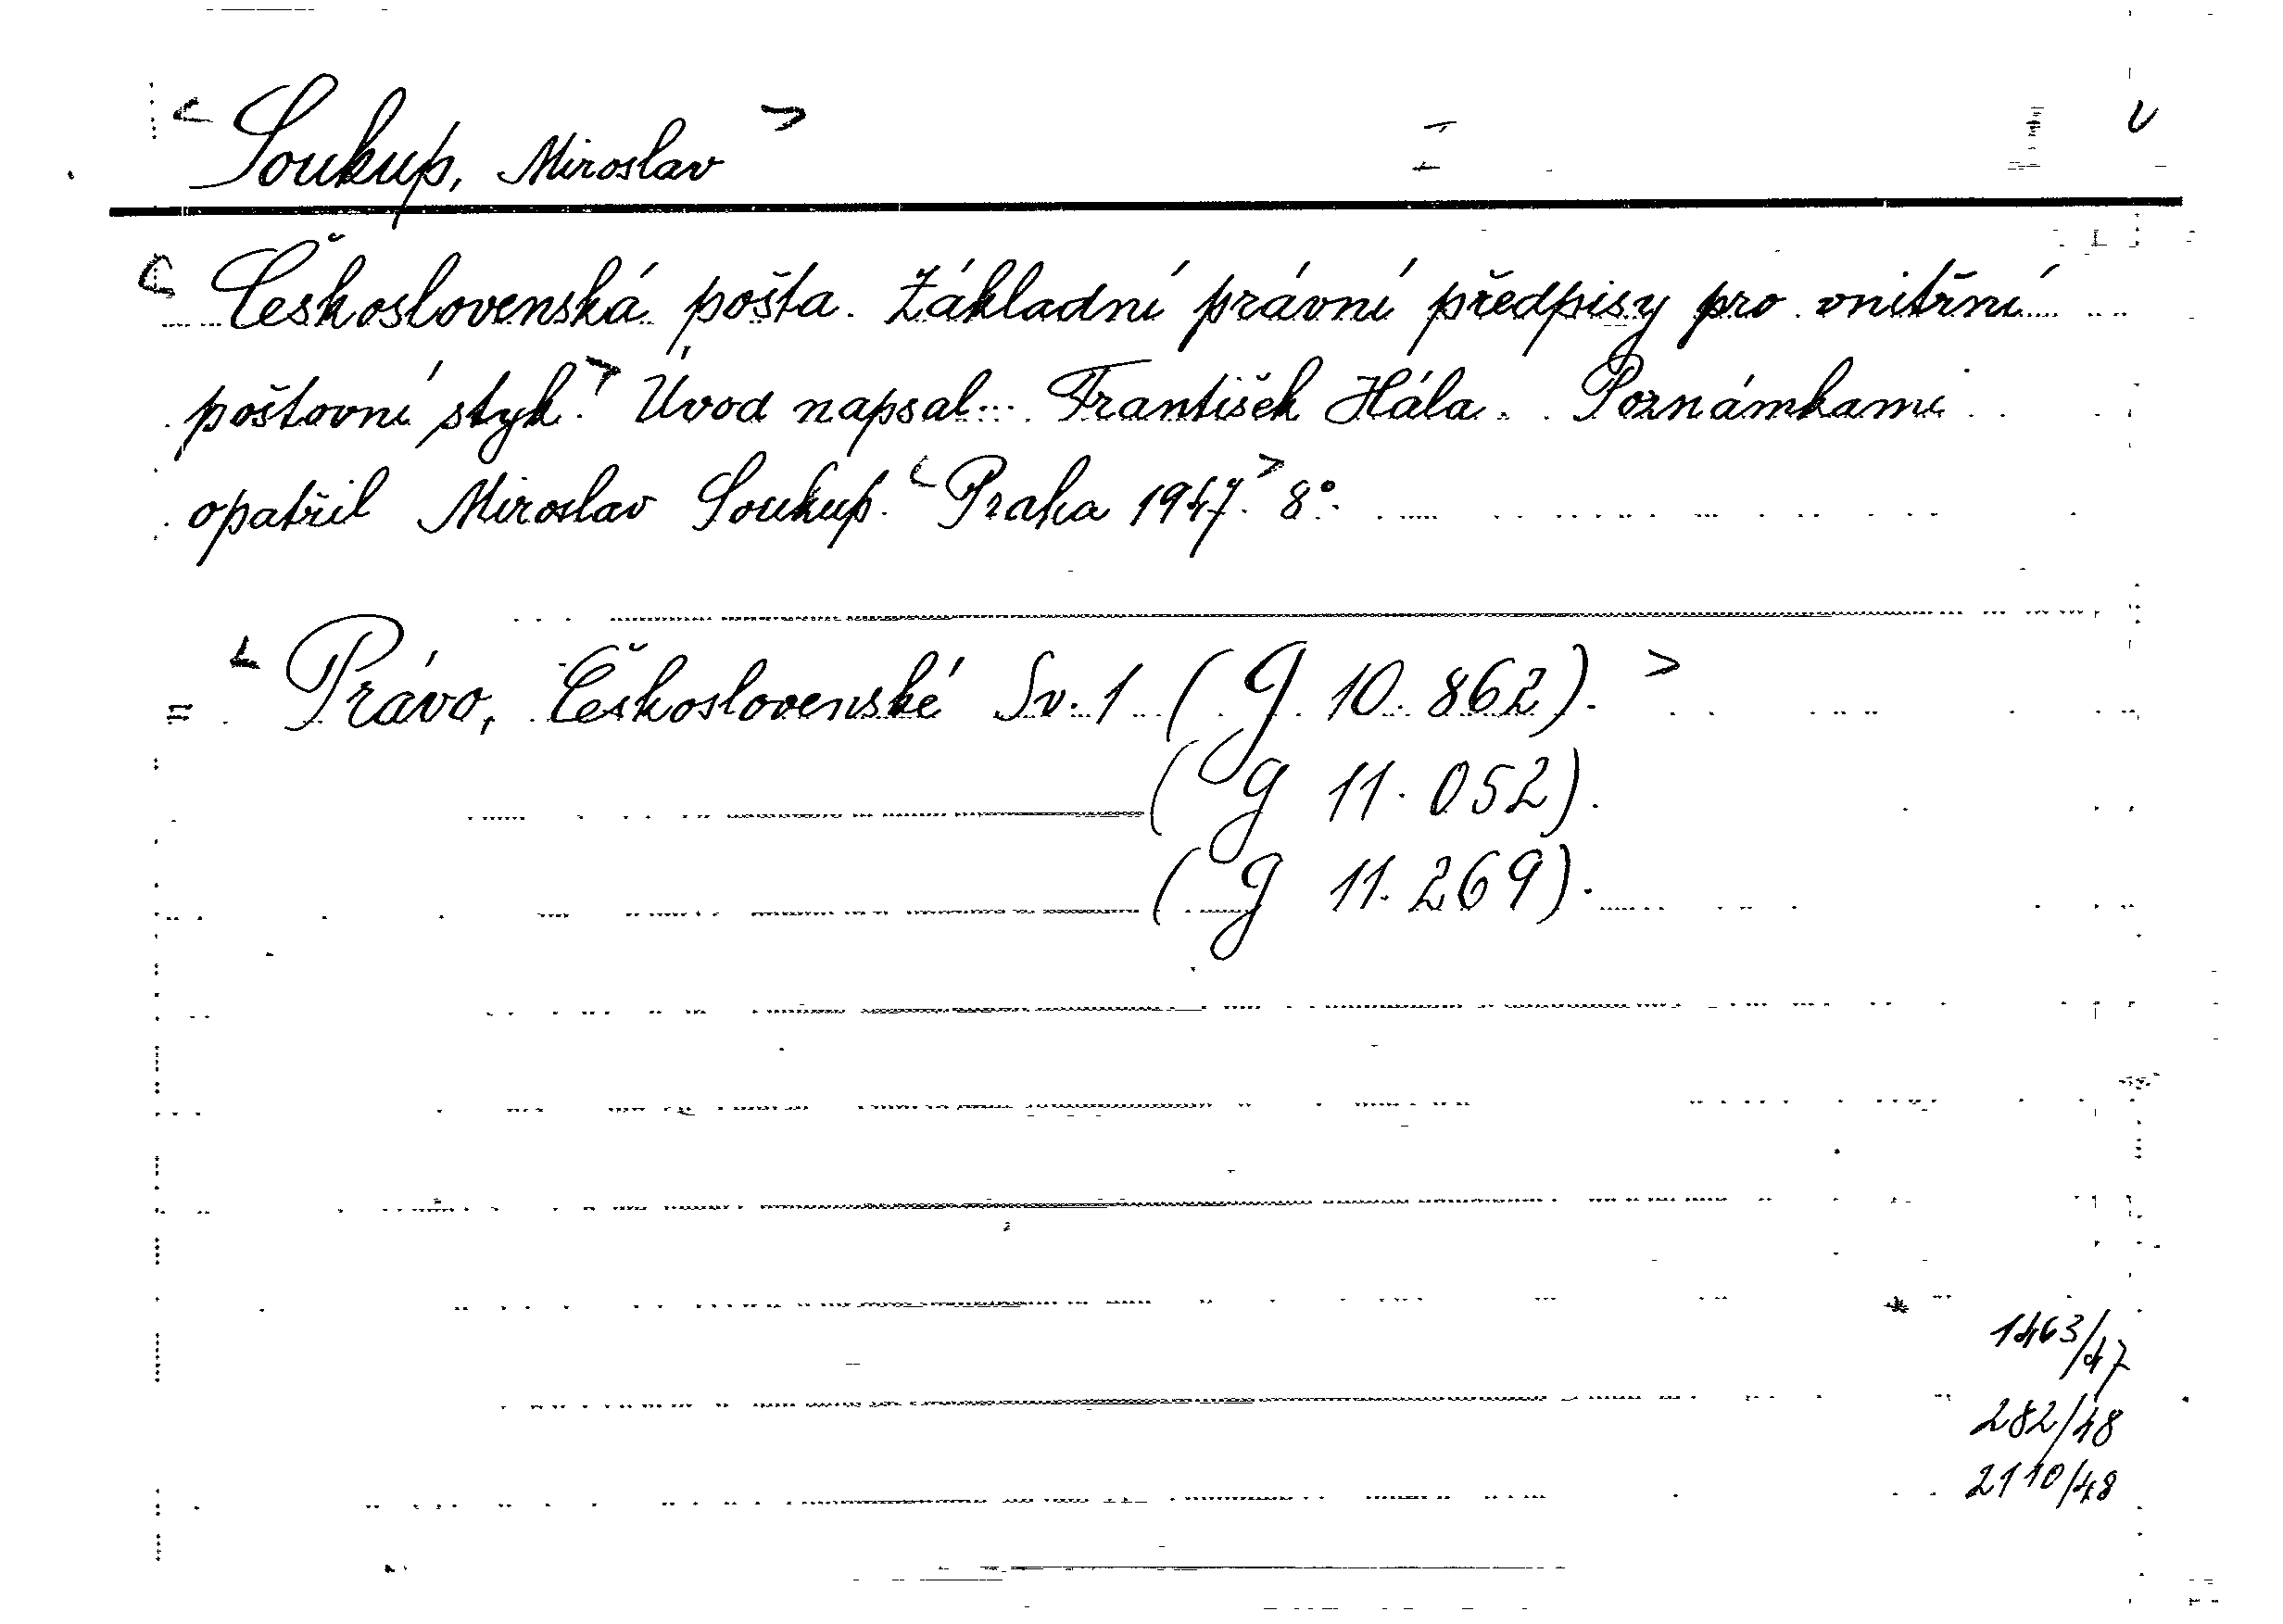 < Soukup, Miroslav >
< Československá pošta. Základní právní předpisy pro vnitřní
poštovní styk. > Úvod napsal... František Hála. Poznámkami
opatřil Miroslav Soukup. < Praha 1947. > 8°.
= < Právo, Československé Sv. 1 (g 10.862). >
(g 11.052).
(g 11.269).
1463/47
282/48
2110/48